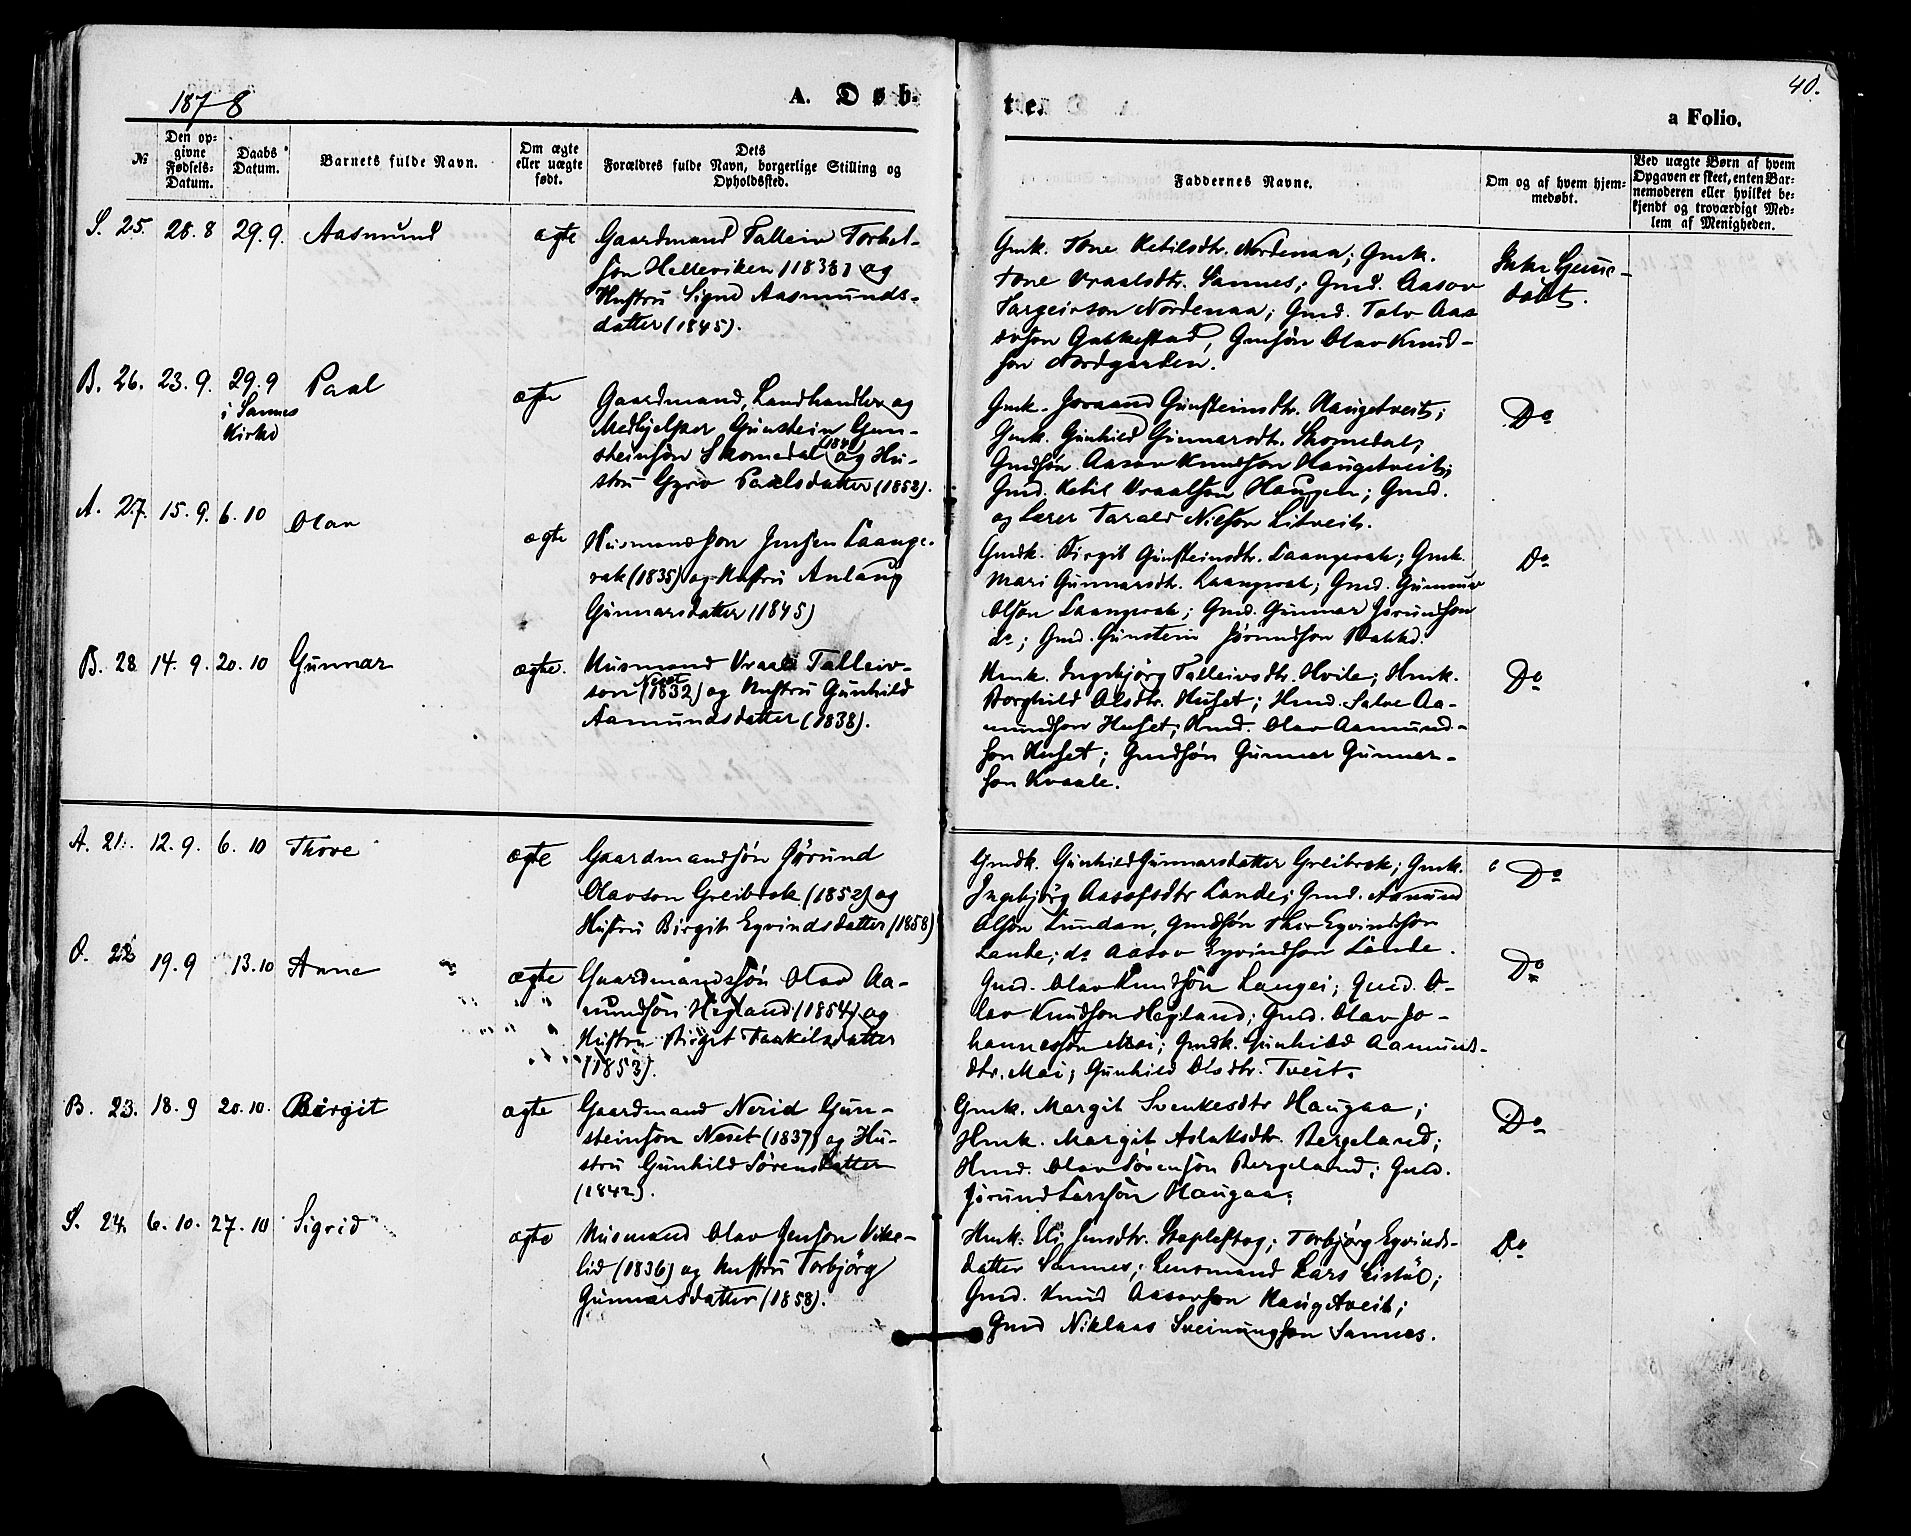 1878
A. Døb-
te.
a Folio.
40.
№
Den op-
givne
Fødsels-
Datum.
Daabs
Datum.
Barnets fulde Navn.
Om ægte
eller uægte
født.
Dets
Forældres fulde Navn, borgerlige Stilling og
Opholdssted.
Faddernes Navne.
Om og af hvem hjem-
medøbt.
Ved uægte Børn af hvem
Opgaven er skeet, enten Bar-
nemoderen eller hvilket be-
kjendt og troværdigt Med-
lem af Menigheden.
S. 25. 28. 8 29. 9. Aasmund ægte
Gaardmand Talleiv Torkel-
son Helleviken og
Hustru Signe Aasmunds-
datter (1845).
Gmk. Tone Ketilsdtr. Nordenaa; Gmk.
Tone Vraalsdtr. Sannes; Gmd. Aasov
Targeirson Nordenaa; Gmd. Talv Aas
ovson Gakkestad, Gmsøn Olav Knud-
son Nordgarden.
Ikke hjeme-
døbt.
B. 26. 23. 9. 29. 9
i Sannes
Kirke
Paal ægte
Gaardmand, Landhandler og
Medhjelper Gunstein Gun-
steinson Skomedal og Hu-
stru Gyro Paalsdatter (1852).
Gmk. Joraand Gunsteinsdtr. Haugetveit;
Gmk. Gunhild Gunnarsdt. Skomedal;
Gmdsøn Aasov Knudson Haugetveit;
Gmd. Ketil Vraalson Haugen; Gmd.
og Lærer Tarald Nielson Litveit.
Do
A. 27. 15. 9. 6. 10 Olav ægte
Husmandsson Jensen Laange-
rak (1835) og Hustru Anlaug
Gunnarsdatter (1845)
Gmdk. Birgit Gunsteinsdtr. Laangerak; Gmk.
Mari Gunnarsdt. Laangerak; Gmd. Gunnar
Olson Laangerak; Gmd. Gunnar Jorundson
do; Gmd. Gunstein Jørundson
Do
B. 28 14. 9. 20. 10 Gunnar ægte.
Husmand Vraal Talleiv-
son Neset (1832) og Hustru Gunhild
Aamundsdatter (1838).
Hmk. Ingebjörg Talleivsdtr. Hvile; Hmk.
Borghild Olsdtr. Huset; Hmd. Salve Aa-
mundson Huset; Hmd. Olav Aamund-
son Huset; Gmdsøn Gunnar Gunnar-
son Kvaale.
Do
A. 21. 12. 9. 6. 10 Thore ægte
Gaardmandsøn Jørund
Olavson Greibrok (1852) og
Hustru Birgit Eyvindsdatter (1858)
Gmdk. Gunhild Gunnarsdatter Greibrok; Gmk.
Ingebjörg Aasofsdtr Lande; Gmd. Aamund
Olsøn Lundan, Gmdsøn Thor Eyvindson
Lande; do Aasov Eyvindson Lande.
Do
O. 22 19. 9 13. 10 Anne ægte
Gaardmandssøn Olav Aa-
mundson Hegland (1854) og
Hustru Birgit Taakilsdatter
(1853).
Gmd. Olav Knudsøn Langei; Gmd. O-
lav Knudson Hegland; Gmd. Olav Jo-
hannesson Moi; Gmdk. Gunhild Aamunds-
dtr. Moi; Gunhild Olsdtr. Tveit.
Do
B. 23. 18. 9 20. 10. Birgit ægte
Gaardmand Nerid Gun-
steinson Neset (1837) og Hu-
stru Gunhild Sørensdatter
(1842).
Gmk. Margit Svenkesdtr Haugaa;
Hmk. Margit Aslaksdtr. Bergeland;
Hmd. Olav Sørensøn Bergeland; Gmd.
Jørund Larssøn Haugaa;
Do
S. 24. 6. 10. 27. 10 Sigrid ægte
Husmand Olav Jenson Vike-
lid (1836) og Hustru Torbjörg
Gunnarsdatter (1858).
Hmk. Eli Jensdtr. Stapleftog; Torbjörg Eyvinds-
datter Sannes; Lensmand Lars Listøl;
Gmd. Knud Aasovson Haugetveit;
Gmd Niklaas Sveinungson Sannes.
Do